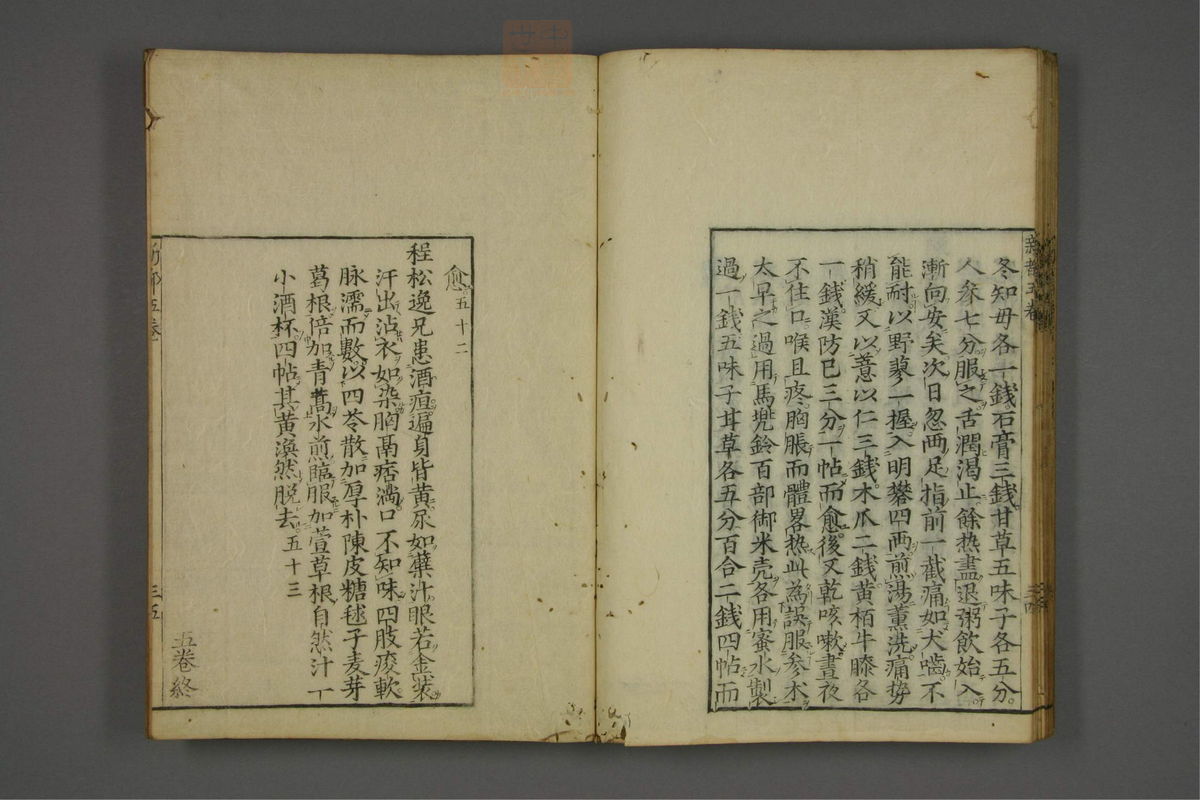 新都五卷
冬知母各一錢石膏三錢甘草五味子各五分
人參七分服之舌潤渴止餘热盡退粥飲始入
漸向安矣次日忽两足指前一截痛如犬嚙不
能耐以野蓼一握入明礬四两煎湯薰洗痛勢
稍緩又以薏以仁三錢木爪二錢黄栢牛膝各
一錢漢防已三分一帖而愈後又乾咳嗽晝夜
不住口喉且疼胸脹而體畧热此為誤服參术
太早之過用馬兠鈴百部御米壳各用蜜水製
過一錢五味子甘草各五分百合二錢四帖而
三四
愈五十二
程松逸兄患酒疸遍身皆黄尿如蘗汁眼若金裝
汗出沾衣如染胸鬲痞满口不知味四肢痠軟
脉濡而數以四苓散加厚朴陳皮糖毬子麦芽
葛根倍加青蒿水煎臨服加萱草根自然汁一
小酒杯四帖其黄渙然脱去五十三
五卷終
五卷
三五